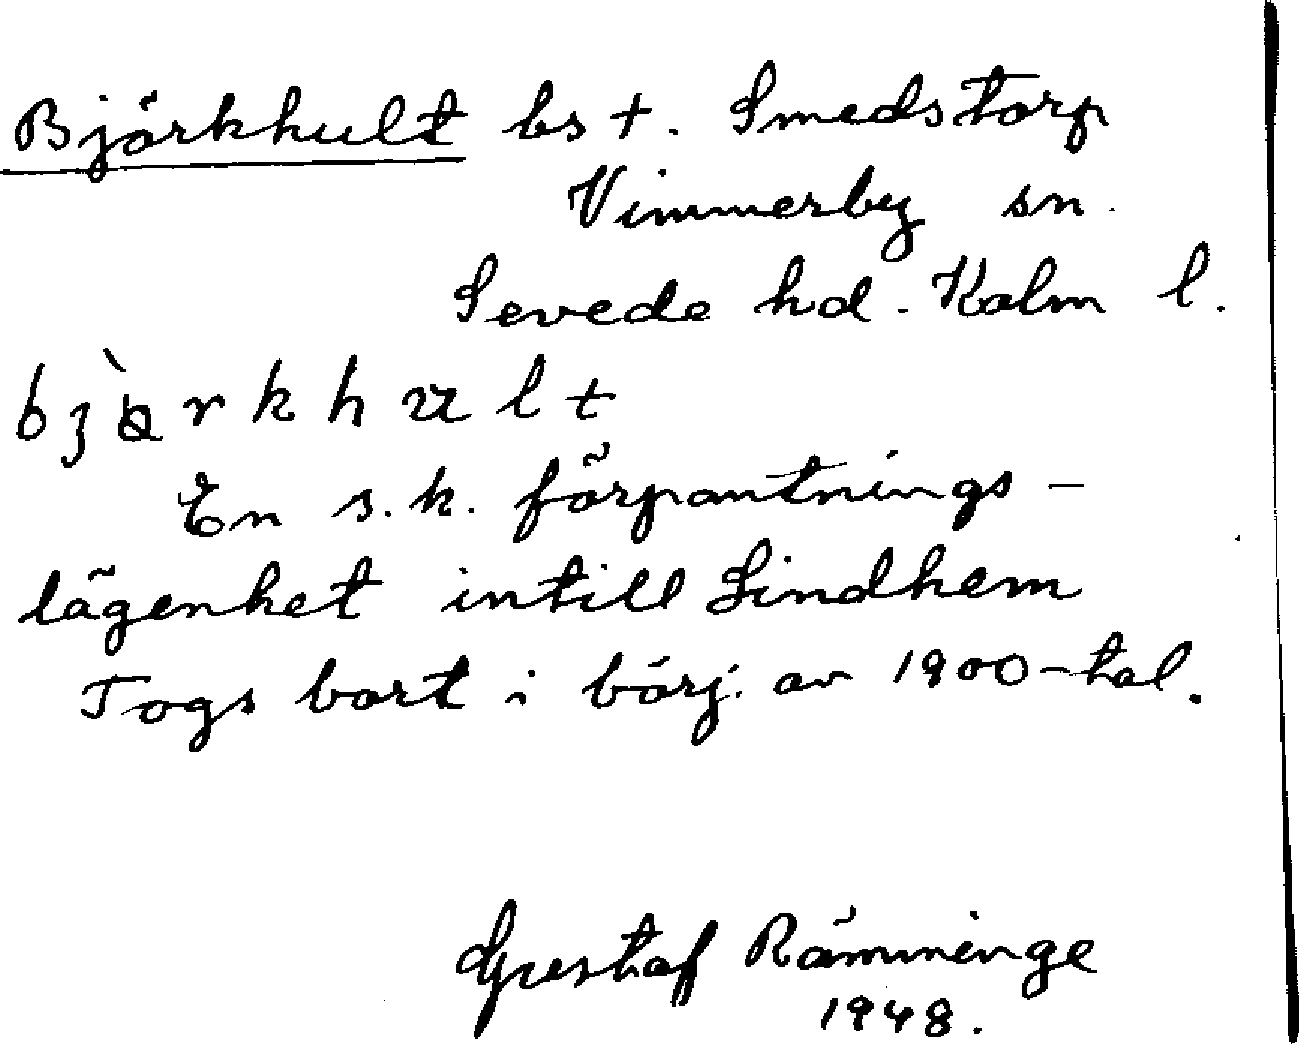 Björkhult bs t. Smedstorp
Vimmerby sn.
Sevede hd. Kalm l.
En s.k. förpantnings-
lägenhet intill Lindhem
Togs bort i börj. av 1900-tal.
Gustaf Rämminge
1948.